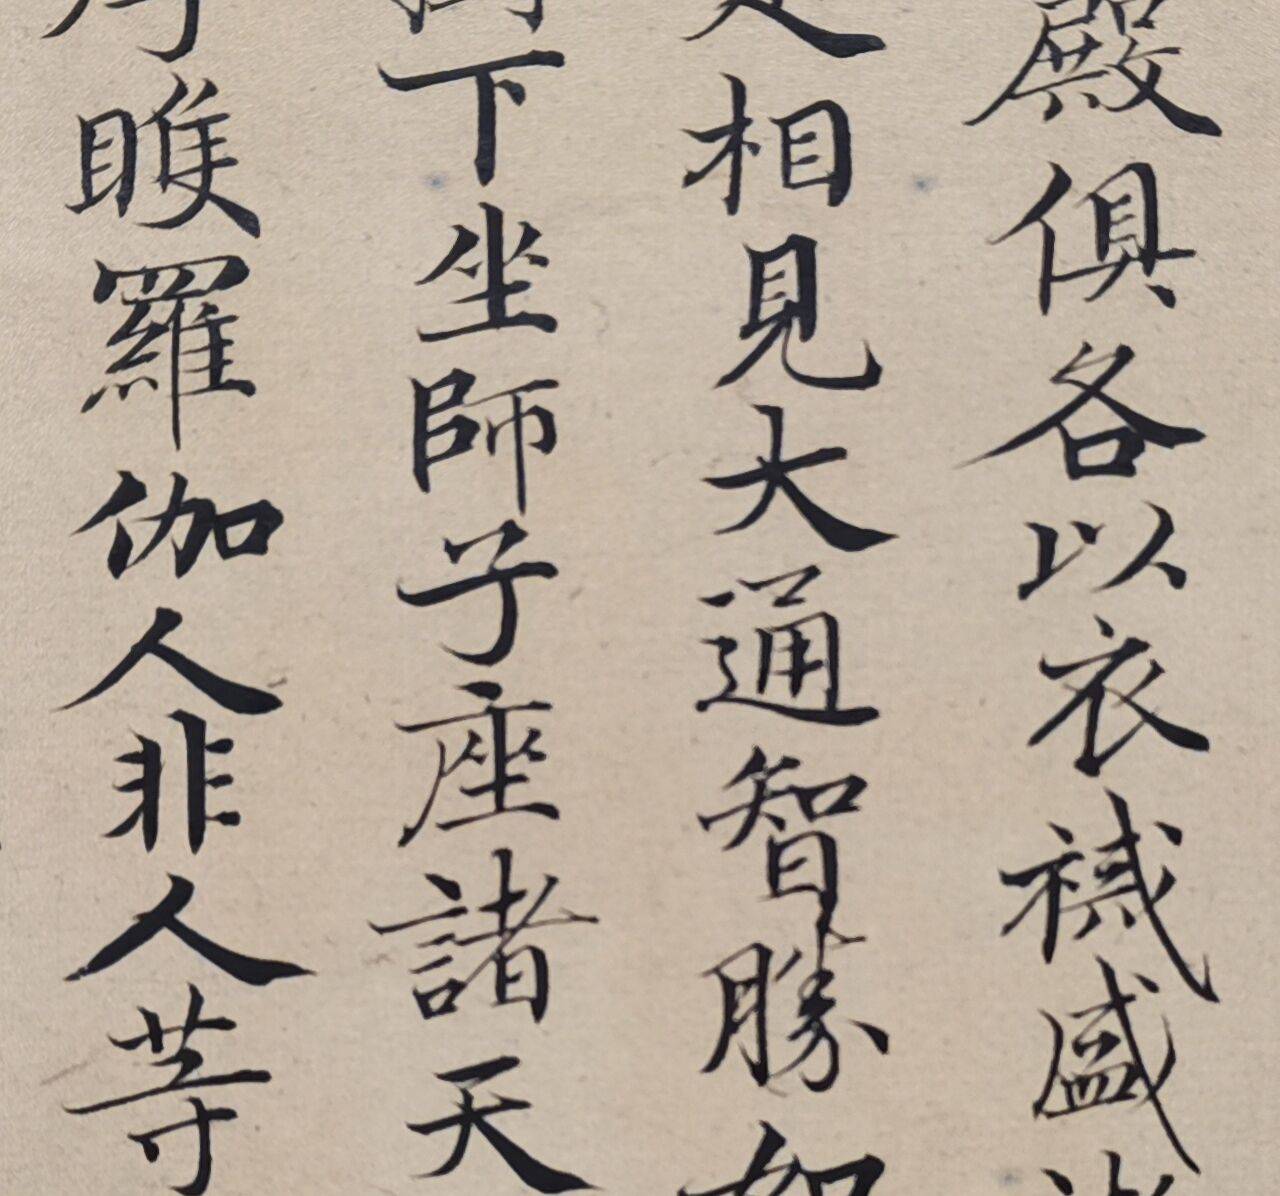 殿俱各以衣祴盛
相見大通智勝如
下坐師子座諸天
睺羅伽人非人等